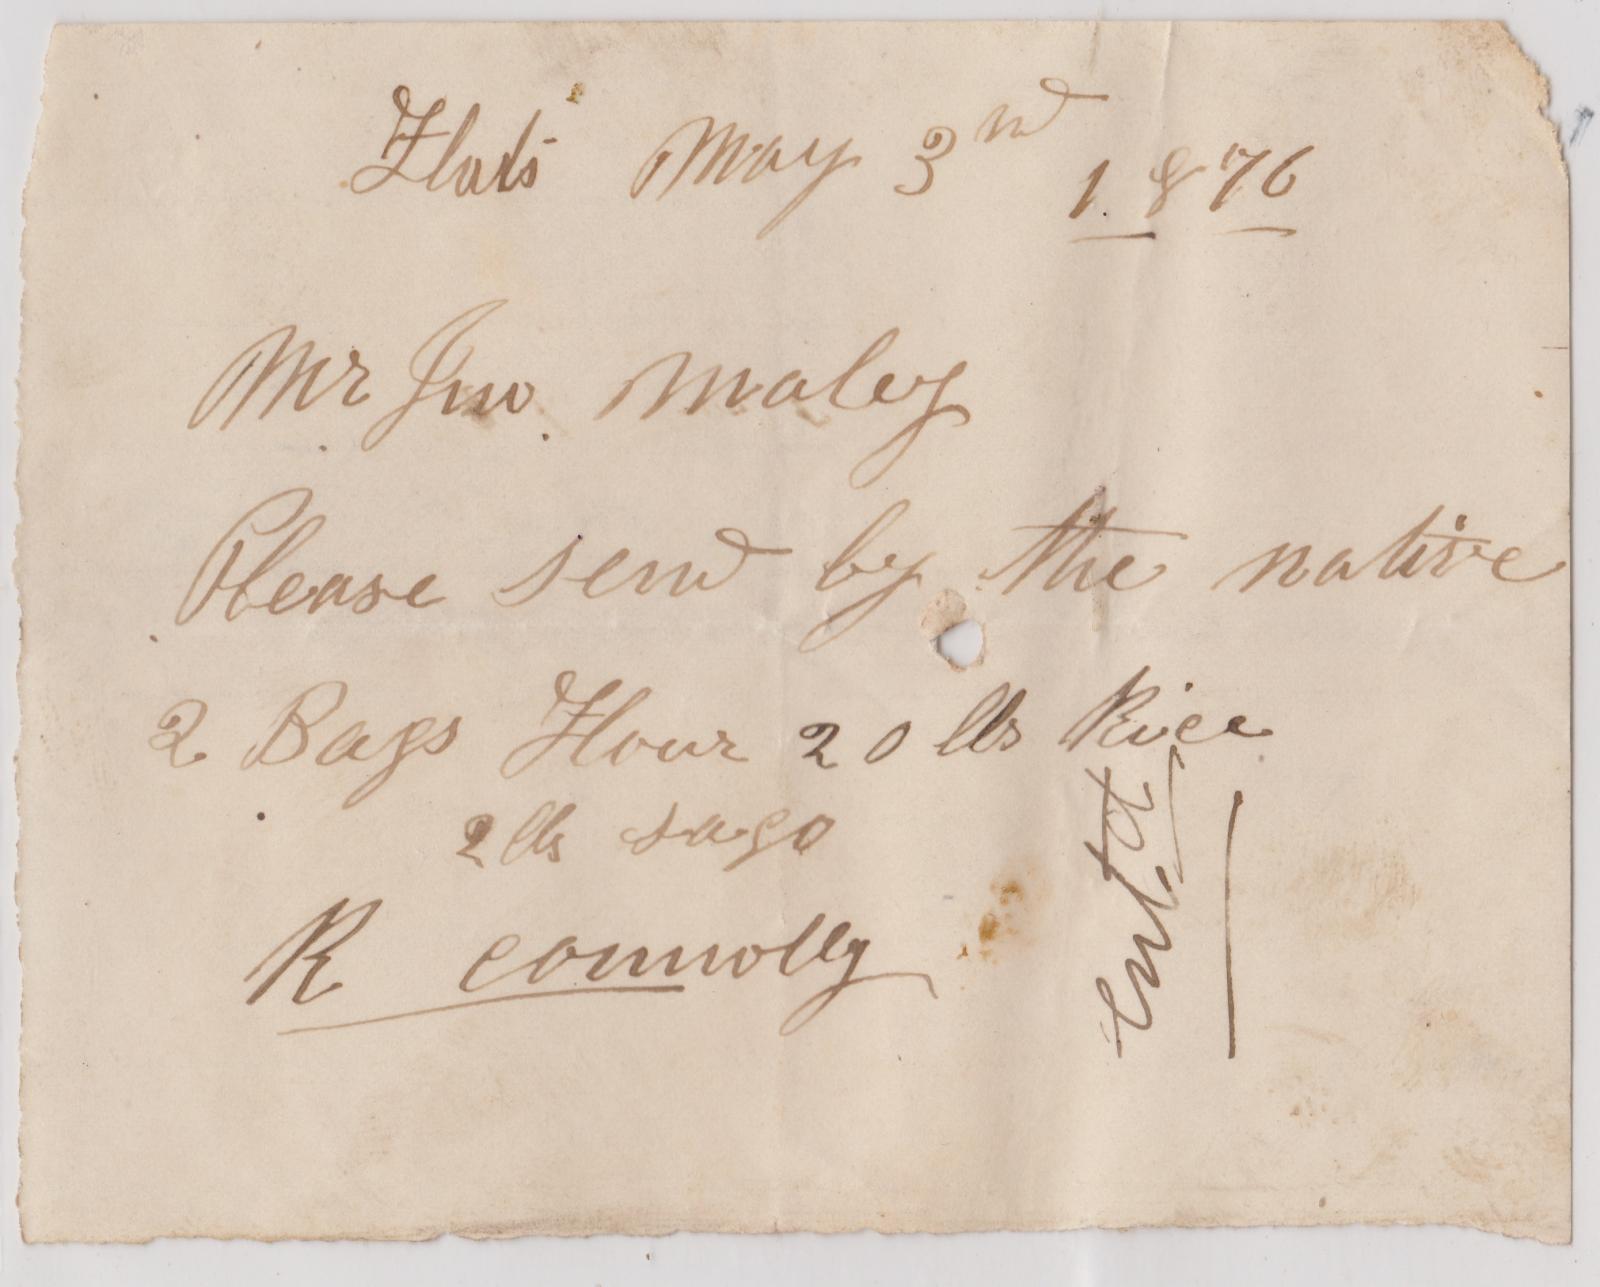 Flats May 3rd 1876
Mr Jno Maley
Please send by the native
2 Bags Flour 20 lbs Rice
2 lbs sago
R Connolly
Entd